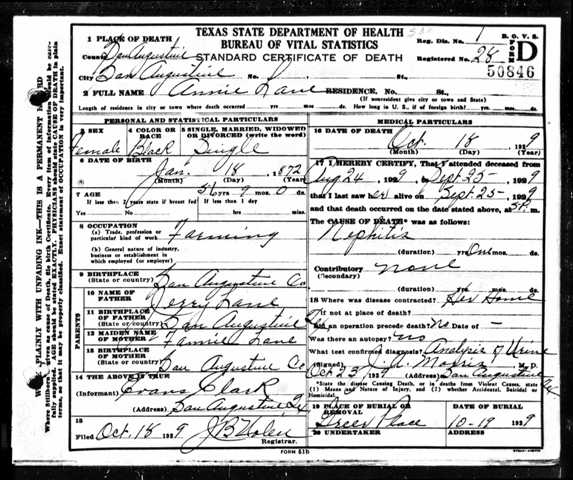 TEXAS STATE DEPARTMENT OF HEALTH
BUREAU OF VITAL STATISTICS
STANDARD CERTIFICATE OF DEATH
1 PLACE OF DEATH
County San Augustine
City San Augustine No. St.
Reg. Dis. No. 1
Registered No. 28
50846
B. O. V. S.
FORM D
2 FULL NAME Annie Lane RESIDENCE, No. St.
(If nonresident give city or town and State)
Length of residence in city or town where death occurred yrs. mos. ds. How long in U. S., if of foreign birth? yrs. mos. ds.
PERSONAL AND STATISTICAL PARTICULARS
3 SEX Female
4 COLOR OR RACE Black
5 SINGLE, MARRIED, WIDOWED OR DIVORCED (write the word) Single
6 DATE OF BIRTH Jan. 18 1872
(Month) (Day) (Year)
7 AGE 56 yrs 9 mos. 0 ds.
If less than 2 years state if breast fed If less than 1 day
8 OCCUPATION
(a) Trade, profession or particular kind of work Farming
(b) General nature of industry, business or establishment in which employed (or employer)
9 BIRTHPLACE
(State or country) San Augustine Co
PARENTS
10 NAME OF FATHER Jerry Lane
11 BIRTHPLACE OF FATHER
(State or country) San Augustine
12 MAIDEN NAME OF MOTHER Fannie Lane
13 BIRTHPLACE OF MOTHER
(State or country) San Augustine Co
14 THE ABOVE IS TRUE
(Informant) Evans Clark
(Address) San Augustine, Tx
15
Filed Oct. 18 1929
Registrar.
MEDICAL PARTICULARS
16 DATE OF DEATH Oct. 18 1929
(Month) (Day) (Year)
17 I HEREBY CERTIFY, That I attended deceased from
Aug 24 1929 to Sept 25 1929
that I last saw er alive on Sept. 25 1929
and that death occurred on the date stated above, m.
The CAUSE OF DEATH was as follows:
Nephitis
(duration) yrs. One mos. ds.
Contributory none
(Secondary)
(duration) yrs. mos. ds.
18 Where was disease contracted? Her Home
if not at place of death?
Did an operation precede death? No Date of –
Was there an autopsy? no
What test confirmed diagnosis? Analysis of Urine
(Signed) M. D.
Oct 23 1929 San Augustine Tx
*State the disease Causing Death, or in deaths from Violent Causes, state (1) Means and Nature of Injury, and (2) whether Accidental, Suicidal or Homicidal.
19 PLACE OF BURIAL OR REMOVAL Greer Place
DATE OF BURIAL 10-19 1929
20 UNDERTAKER
ADDRESS
FORM 51b